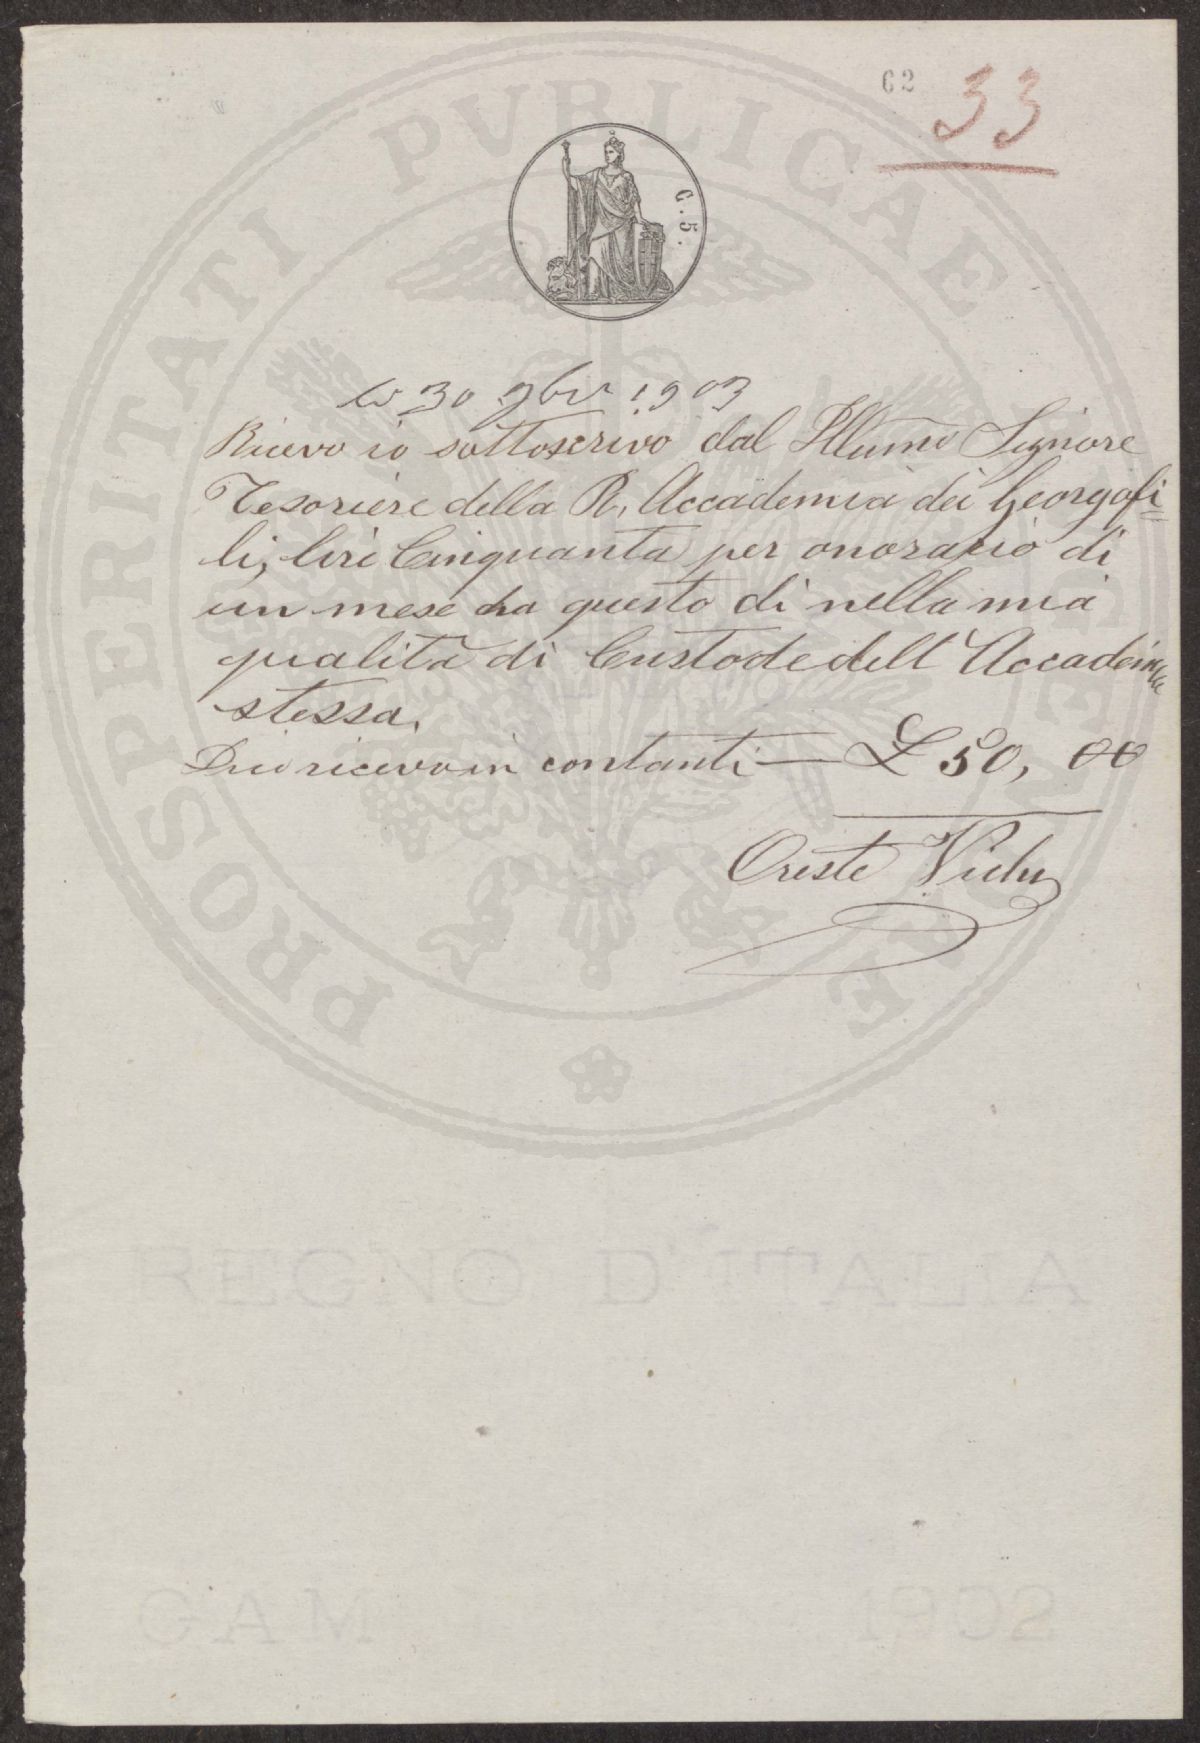 62
33
G. 5.
30 9bre 1903
Ricevo io sottoscrivo dal Illumo Signore
Tesoriere della R. Accademia dei Georgofi=
li, lire Cinquanta per onorario di
un mese da questo di nella mia
qualità di Custode dell' Accademia
stessa.
Dico ricevo in contanti — £ 50, 00
Oreste
PROSPERITATI PVBLICAE
REGNO D'ITALIA
GAM 1902